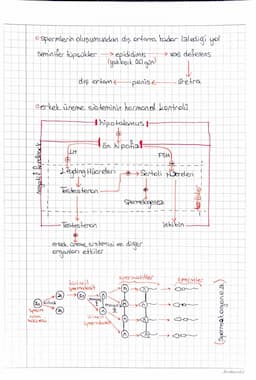 spermlerin oluşumundan dış ortama kadar izlediği yol
seminifer tüpçükler → epididimis → vas deferens
dış ortam ← penis ← üretra
erkek üreme sisteminin hormonal kontrolü
hipotalamus
ön hipofiz
LH
FSH
Leydig Hücreleri
Sertoli Hücreleri
Testosteron
Spermatogenez
testisler
negatif feedback
Testosteron
inhibin
erkek üreme sistemini ve diğer
organları etkiler
spermatitler
spermler
birincil
spermatosit
2n
mitoz
2n
2n
n
n
n
n
n
n
sperm
ana
hücresi
ikincil
spermatosit
(spermatogenez)